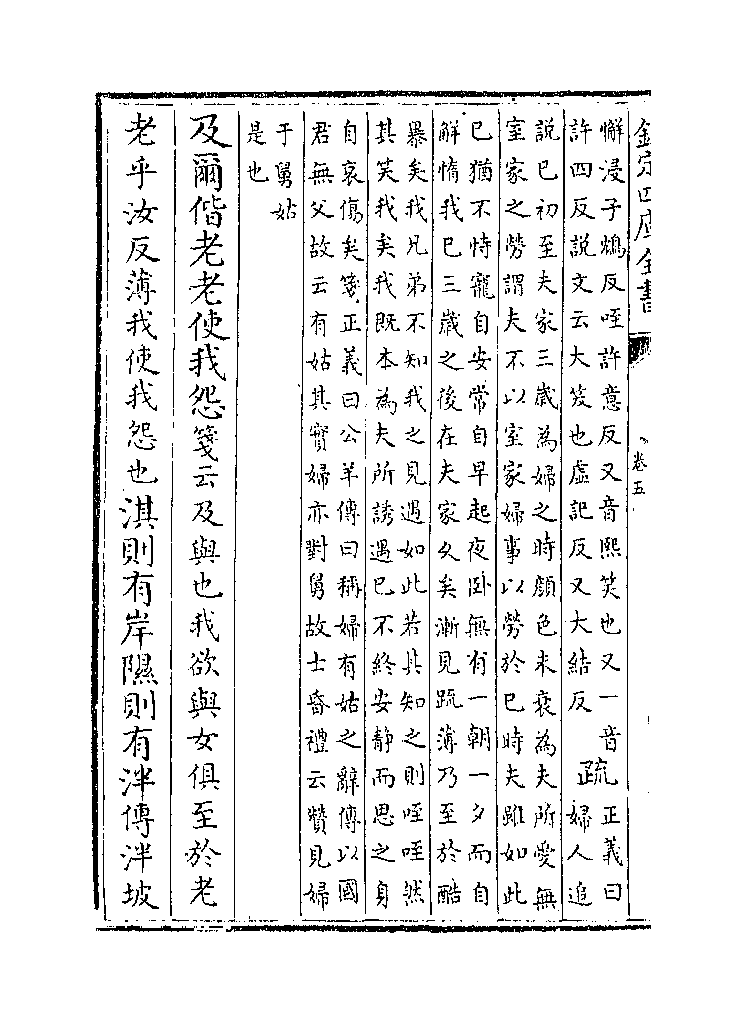 欽定四庫全書
卷五
懈浸子鴆反咥許意反又音熙笑也又一音
許四反説文云大笑也虛記反又大結反
疏
正義曰
婦人追
說已初至夫家三歲為婦之時顔色未衰為夫所愛無
室家之勞謂夫不以室家婦事以勞於已時夫雖如此
已猶不恃寵自安常自早起夜卧無有一朝一夕而自
解惰我已三歲之後在夫家久矣漸見疏薄乃至於酷
暴矣我兄弟不知我之見遇如此若其知之則咥咥然
其笑我矣我既本為夫所誘遇已不終安靜而思之身
自哀傷矣箋正義曰公羊傳曰稱婦有姑之辭傳以國
君無父故云有姑其實婦亦對舅故士昏禮云贊見婦
于舅姑
是也
及爾偕老老使我怨箋云及與也我欲與女俱至於老
老乎汝反薄我使我怨也淇則有岸隰則有泮傳泮坡